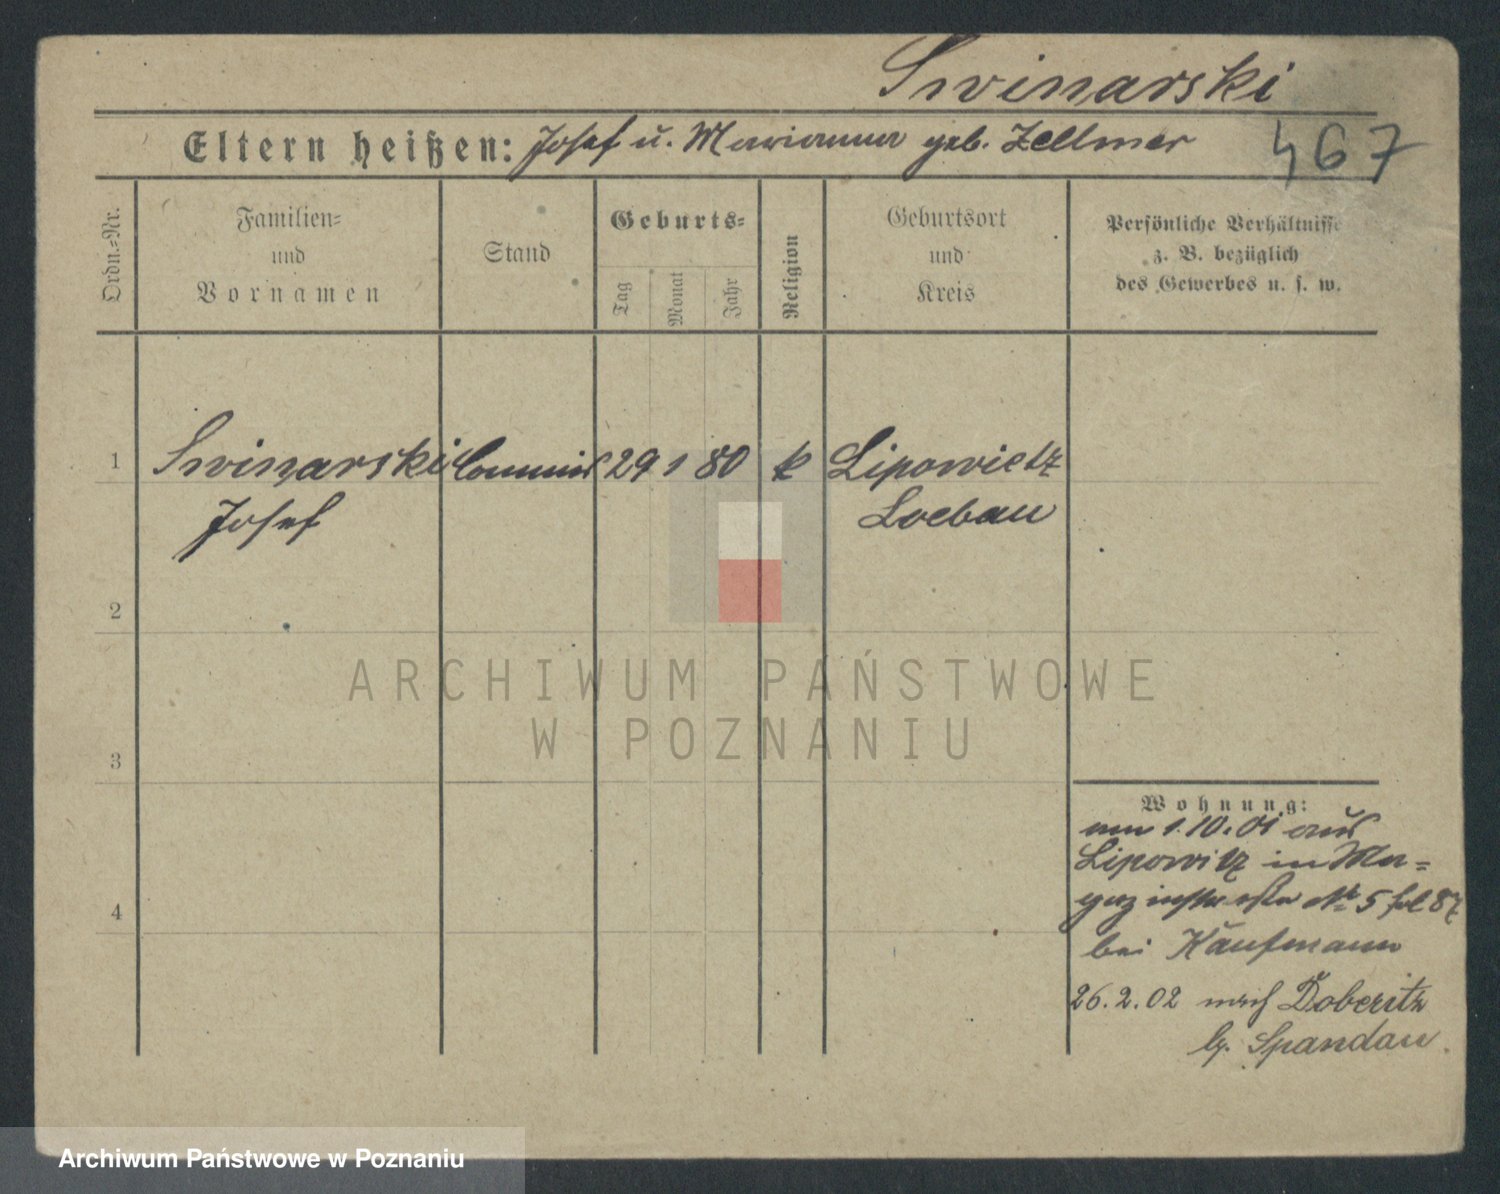 Swinarski
Eltern heißen: Josef u. Marianna geb. Zellmer
467
Ordn.=Nr.
Familien=
und
Vornamen
Stand
Geburts=
Tag
Monat
Jahr
Religion
Geburtsort
und
Kreis
Persönliche Verhältnisse
z. B. bezüglich
des Gewerbes u. s. w.
1 Swinarski Commis 29 1 80 k Lipowietz
Josef Loebau
2
3
4
ARCHIWUM PAŃSTWOWE
W POZNANIU
Wohnung:
am 1.10.01 aus
Lipowitz in Ma=
gazinstraße Nr 5 fol 87
bei Kaufmann
26.2.02 nach Doberitz
b. Spandau.
Archiwum Państwowe w Poznaniu